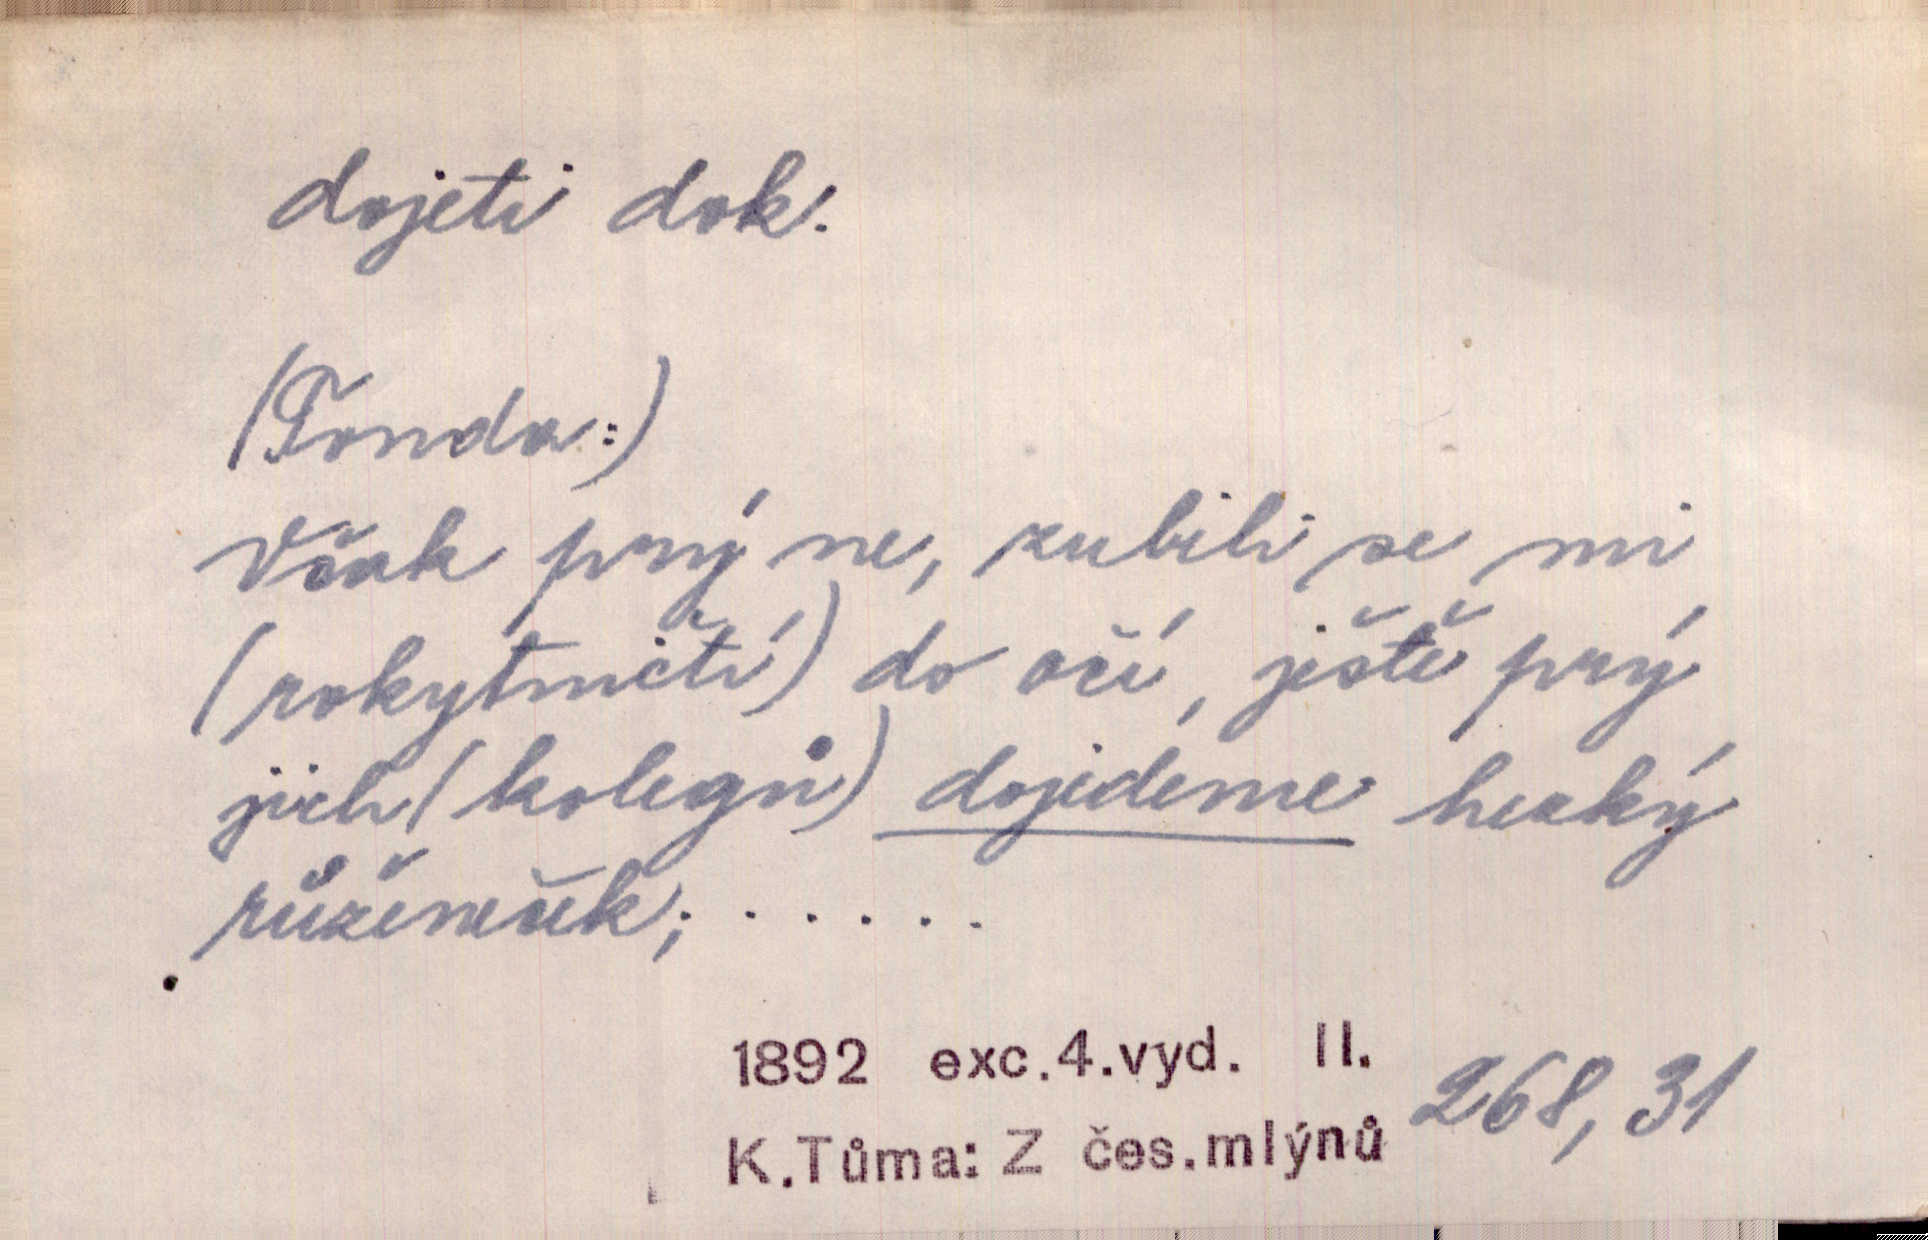 dojeti dok.
(Tonda:)
Však prý ne, zubili se mi
(rokytničtí) do očí, ještě prý
jich (kolegů) dojedeme hezký
růženeček; . . . . . .
1892 exc.4.vyd. II.
K.Tůma: Z čes.mlýnů 268, 31